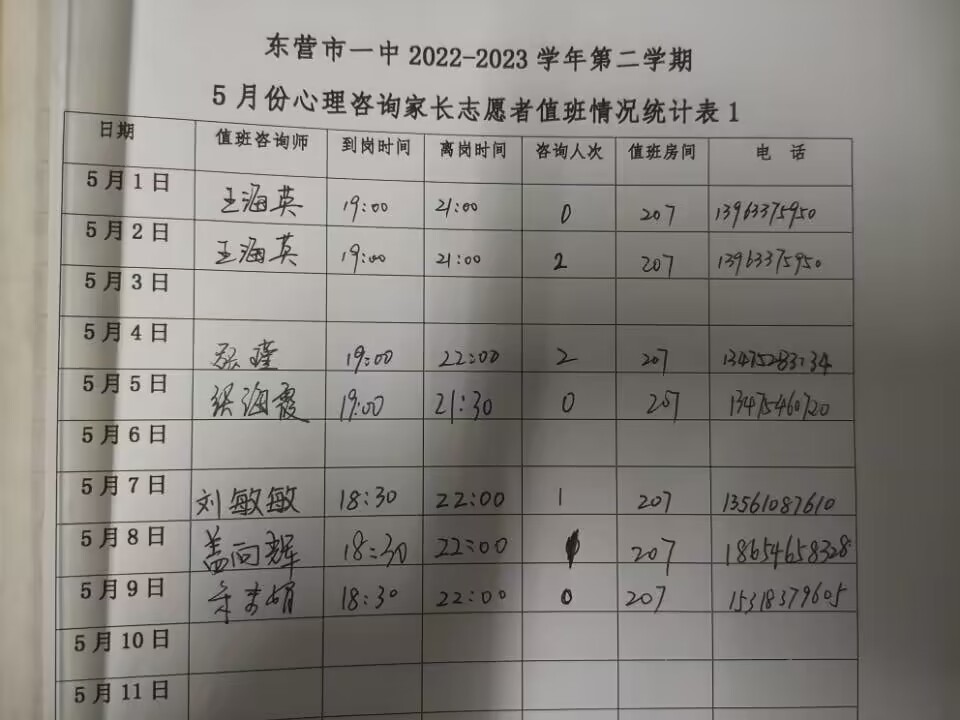 东营市一中 2022-2023 学年第二学期
5 月份心理咨询家长志愿者值班情况统计表 1
日期 值班咨询师 到岗时间 离岗时间 咨询人次 值班房间 电 话
5 月 1 日 王海英 19:00 21:00 0 207 13963375950
5 月 2 日 王海英 19:00 21:00 2 207 13963375950
5 月 3 日
5 月 4 日 19:00 22:00 2 207
5 月 5 日 梁海霞 19:00 21:30 0 207 13475460720
5 月 6 日
5 月 7 日 刘敏敏 18:30 22:00 1 207 13561087610
5 月 8 日 盖向辉 18:30 22:00 207 18654658328
5 月 9 日 18:30 22:00 0 207 15318379605
5 月 10 日
5 月 11 日